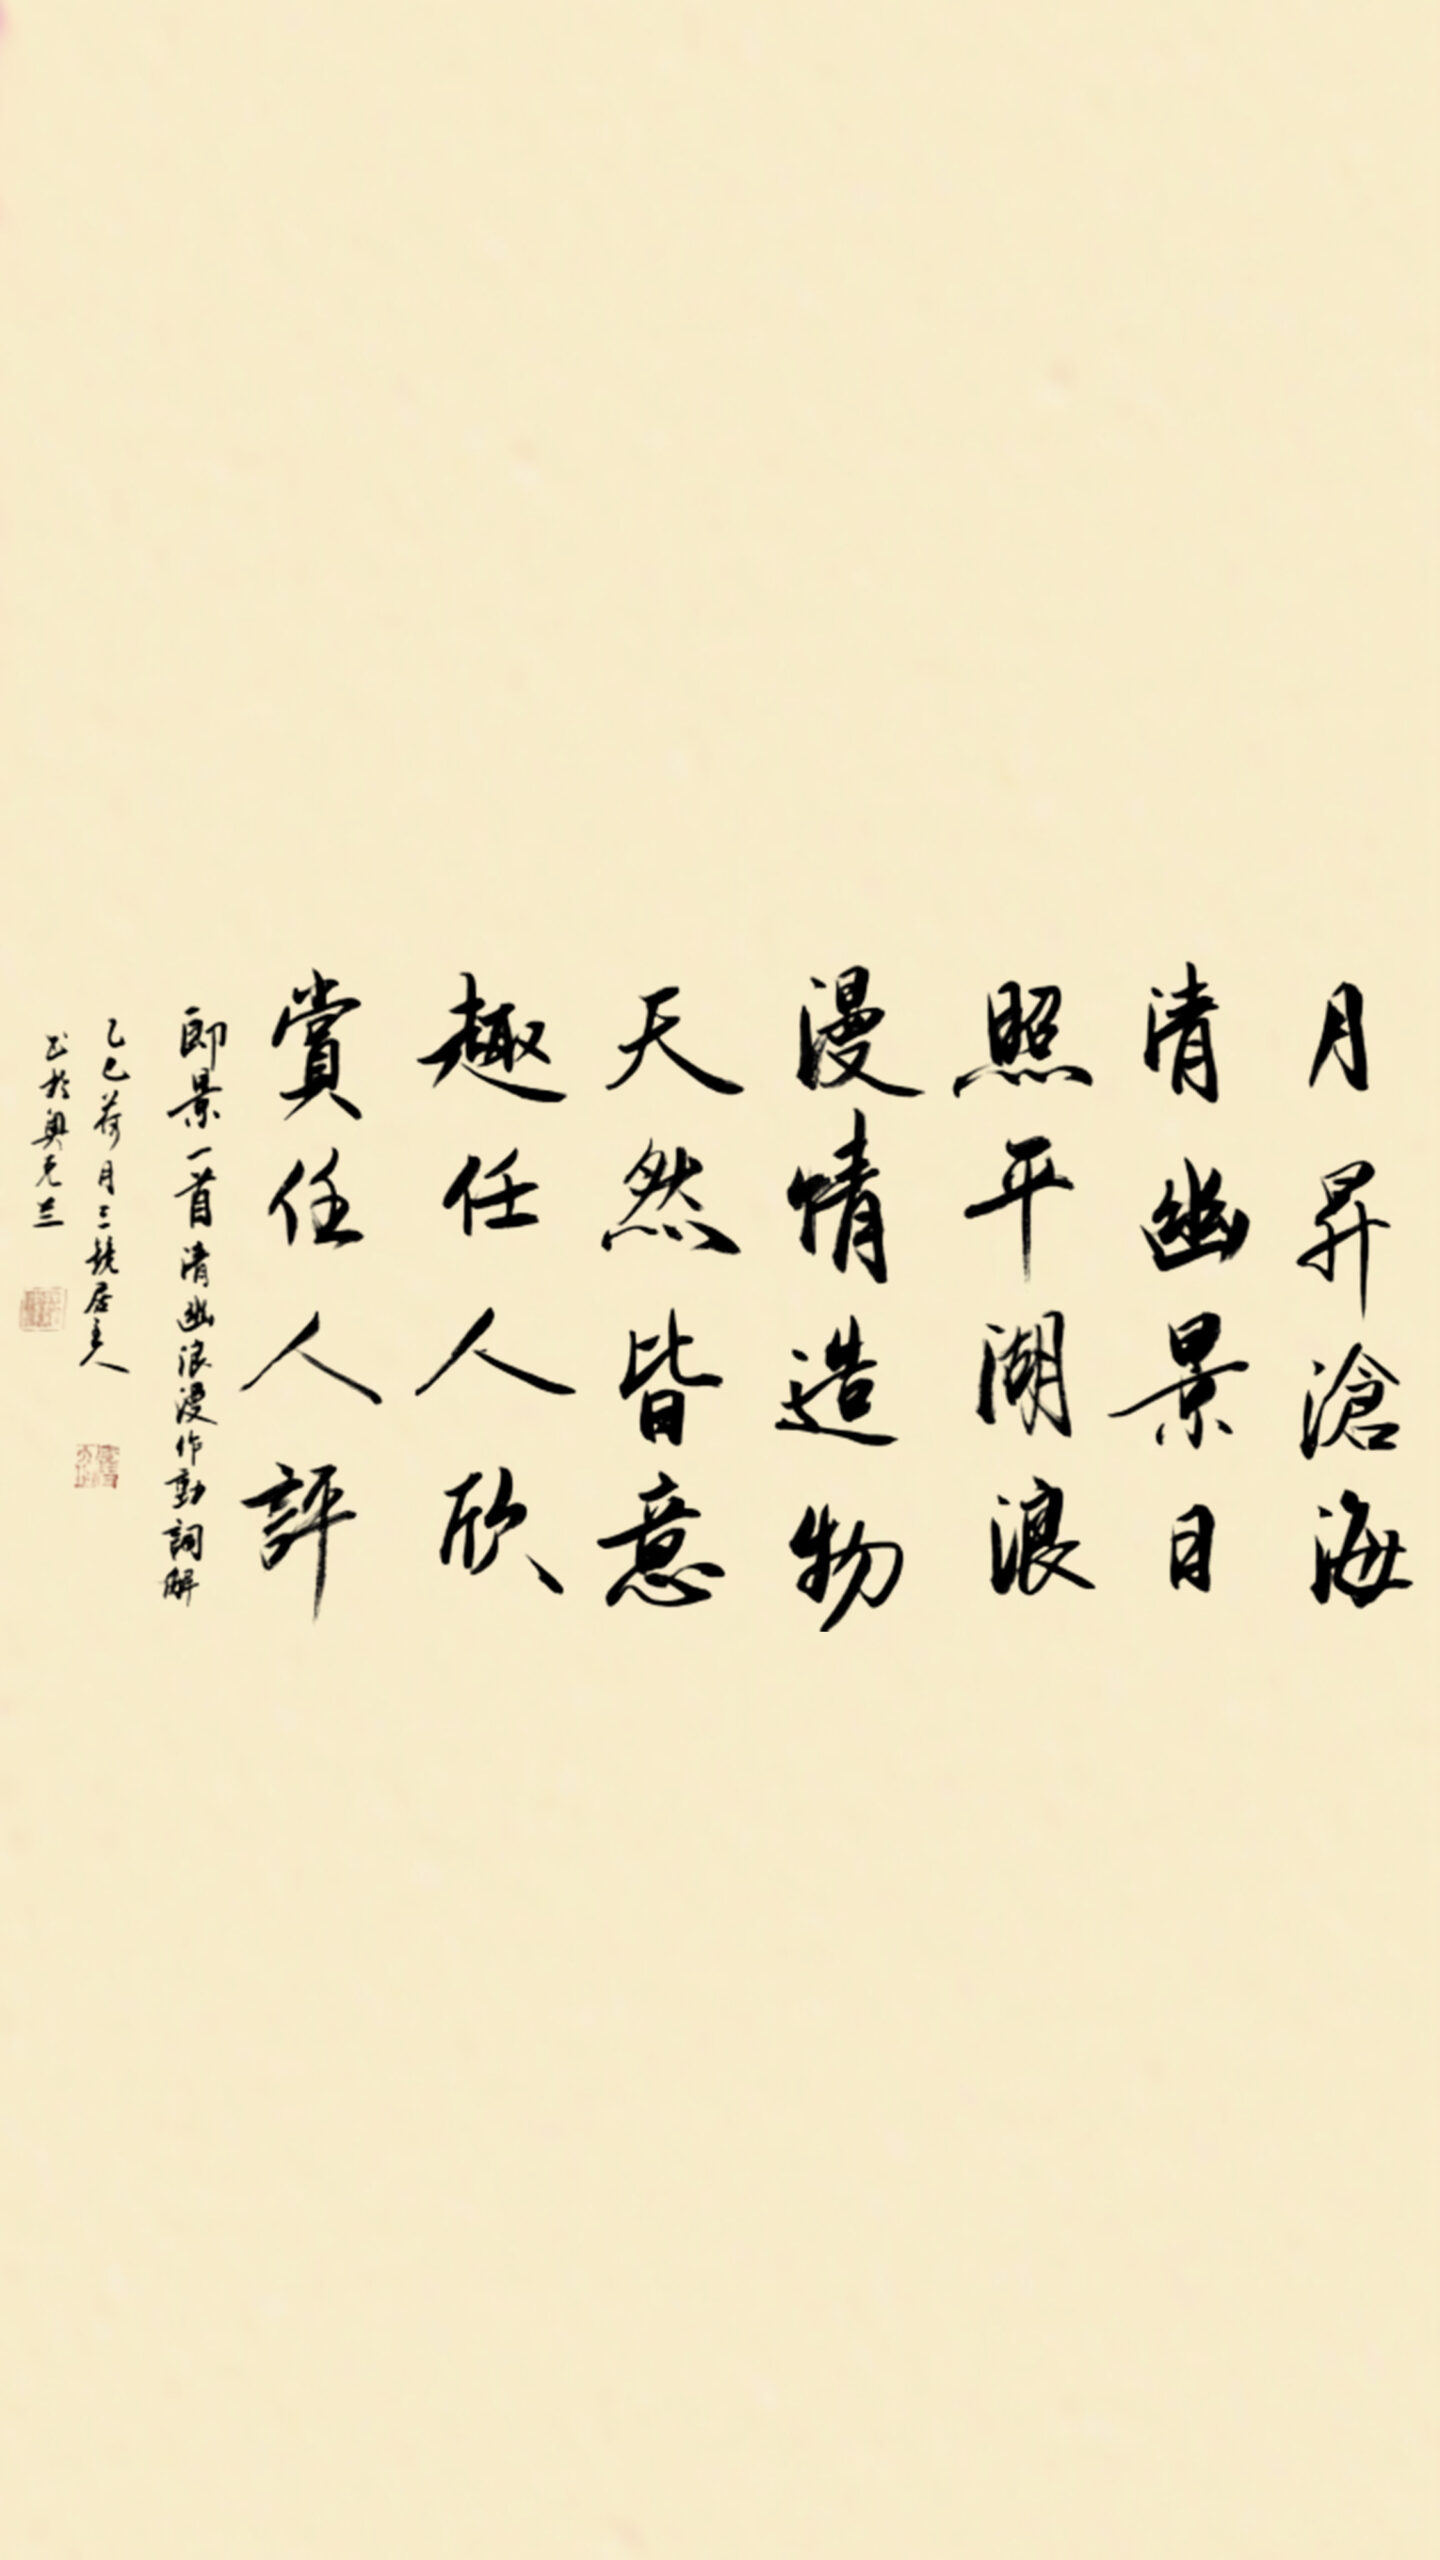 月昇滄海
清幽景日
照平湖浪
漫情造物
天然皆意
趣任人欣
賞任人評
即景一首清幽浪漫作動詞解
乙巳荷月三鏡居主人
书於奥克兰